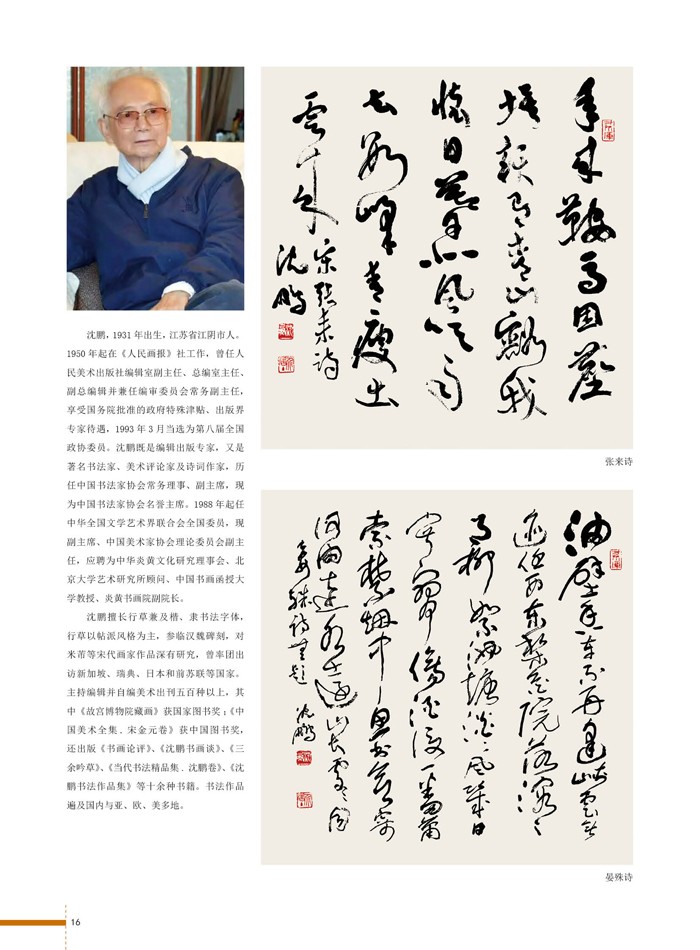 年来鞍马困塵
埃赖有青山豁我
怀日暮北风吹雨
去数峰清瘦出
云来
宋张耒诗
沈鹏
张来诗
油壁香车不再逢峡云无
迹任西东梨花院落溶溶
月柳絮池塘淡淡风几日
寂寥伤酒后一番萧
索禁烟中鱼书欲寄
何由达水远山长处处同
晏殊诗无题 沈鹏
晏殊诗
沈鹏，1931 年出生，江苏省江阴市人。
1950 年起在《人民画报》社工作，曾任人
民美术出版社编辑室副主任、总编室主任、
副总编辑并兼任编审委员会常务副主任，
享受国务院批准的政府特殊津贴、出版界
专家待遇，1993 年 3 月当选为第八届全国
政协委员。沈鹏既是编辑出版专家，又是
著名书法家、美术评论家及诗词作家，历
任中国书法家协会常务理事、副主席，现
为中国书法家协会名誉主席。1988 年起任
中华全国文学艺术界联合会全国委员，现
副主席、中国美术家协会理论委员会副主
任，应聘为中华炎黄文化研究理事会、北
京大学艺术研究所顾问、中国书画函授大
学教授、炎黄书画院副院长。
沈鹏擅长行草兼及楷、隶书法字体，
行草以帖派风格为主，参临汉魏碑刻，对
米芾等宋代画家作品深有研究，曾率团出
访新加坡、瑞典、日本和前苏联等国家。
主持编辑并自编美术出刊五百种以上，其
中《故宫博物院藏画》获国家图书奖；《中
国美术全集．宋金元卷》获中国图书奖，
还出版《书画论评》、《沈鹏书画谈》、《三
余吟草》、《当代书法精品集．沈鹏卷》、《沈
鹏书法作品集》等十余种书籍。书法作品
遍及国内与亚、欧、美多地。
16